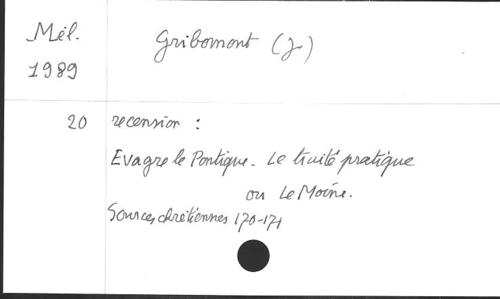 Mél.
1989
Gribomont (J.)
20 recension :
Evagre le Pontique - Le traité pratique
ou Le Moine.
Sources chrétiennes 170-171